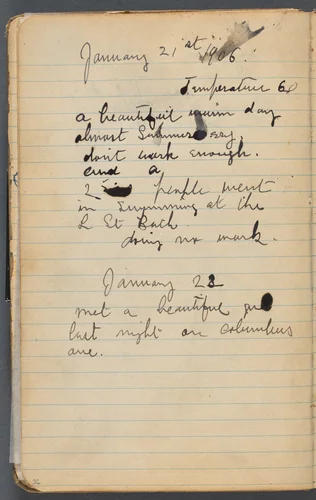 January 21st 1906.
Temperature 60
a beautiful warm day
almost Summer
don't work enough.
and a
people went
in swimming at the
L St Bath
doing no work.
January 22
met a beautiful
last night on Columbus
ave.